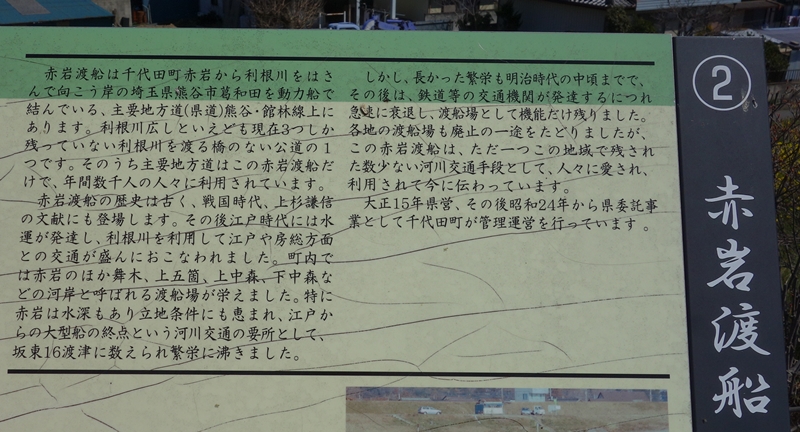 赤岩渡船は千代田町赤岩から利根川をはさ
んで向こう岸の埼玉県熊谷市葛和田を動力船で
結んでいる、主要地方道(県道)熊谷・館林線上に
あります。利根川広しといえども現在3つしか
残っていない利根川を渡る橋のない公道の1
つです。そのうち主要地方道はこの赤岩渡船だ
けで、年間数千人の人々に利用されています。
赤岩渡船の歴史は古く、戦国時代、上杉謙信
の文献にも登場します。その後江戸時代には水
運が発達し、利根川を利用して江戸や房総方面
との交通が盛んにおこなわれました。町内で
は赤岩のほか舞木、上五箇、上中森、下中森な
どの河岸と呼ばれる渡船場が栄えました。特に
赤岩は水深もあり立地条件にも恵まれ、江戸か
らの大型船の終点という河川交通の要所として、
坂東16渡津に数えられ繁栄に沸きました。
しかし、長かった繁栄も明治時代の中頃までで、
その後は、鉄道等の交通機関が発達するにつれ
急速に衰退し、渡船場として機能だけ残りました。
各地の渡船場も廃止の一途をたどりましたが、
この赤岩渡船は、ただ一つこの地域で残され
た数少ない河川交通手段として、人々に愛され、
利用されて今に伝わっています。
大正15年県営、その後昭和24年から県委託事
業として千代田町が管理運営を行っています。
②
赤岩渡船